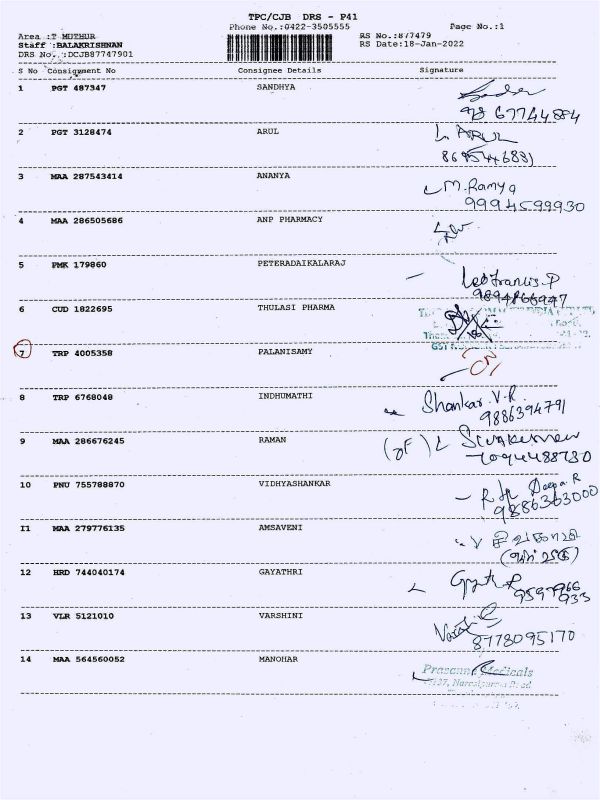 TPC/CJB DRS - P41
Phone No.:0422-3505555
Page No.:1
Area :T MUTHUR
Staff :BALAKRISHNAN
DRS No.:DCJB87747901
RS No.:877479
RS Date:18-Jan-2022
S No Consignment No Consignee Details Signature
1 PGT 487347 SANDHYA
98 67744884
2 PGT 3128474 ARUL L. ARUL
3 MAA 287543414 ANANYA M. Ramya
9994599930
4 MAA 286505686 ANP PHARMACY
5 PMK 179860 PETERADAIKALARAJ Leo Francis.P
9894866947
6 CUD 1822695 THULASI PHARMA
7 TRP 4005358 PALANISAMY
8 TRP 6768048 INDHUMATHI Shankar.V.R
9886394791
9 MAA 286676245 RAMAN
10 PNU 755788870 VIDHYASHANKAR Deepa R
9886363000
11 MAA 279776135 AMSAVENI
12 HRD 744040174 GAYATHRI
13 VLR 5121010 VARSHINI
8778095170
14 MAA 564560052 MANOHAR Prasanna Medicals